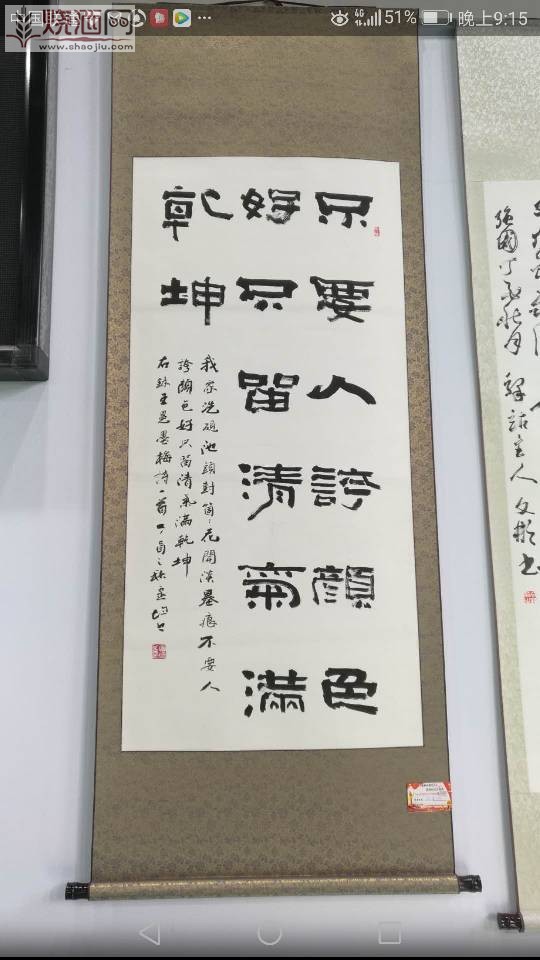 中国
4G 51% 晚上9:15
烧酒网
www.shaojiu.com
不要人誇顏色
好只留清氣滿
乾坤
我家洗硯池頭樹箇〻花開淡墨痕不要人
誇顏色好只留清氣滿乾坤
右錄王冕墨梅詩一首丁酉之秋
主人文彬书